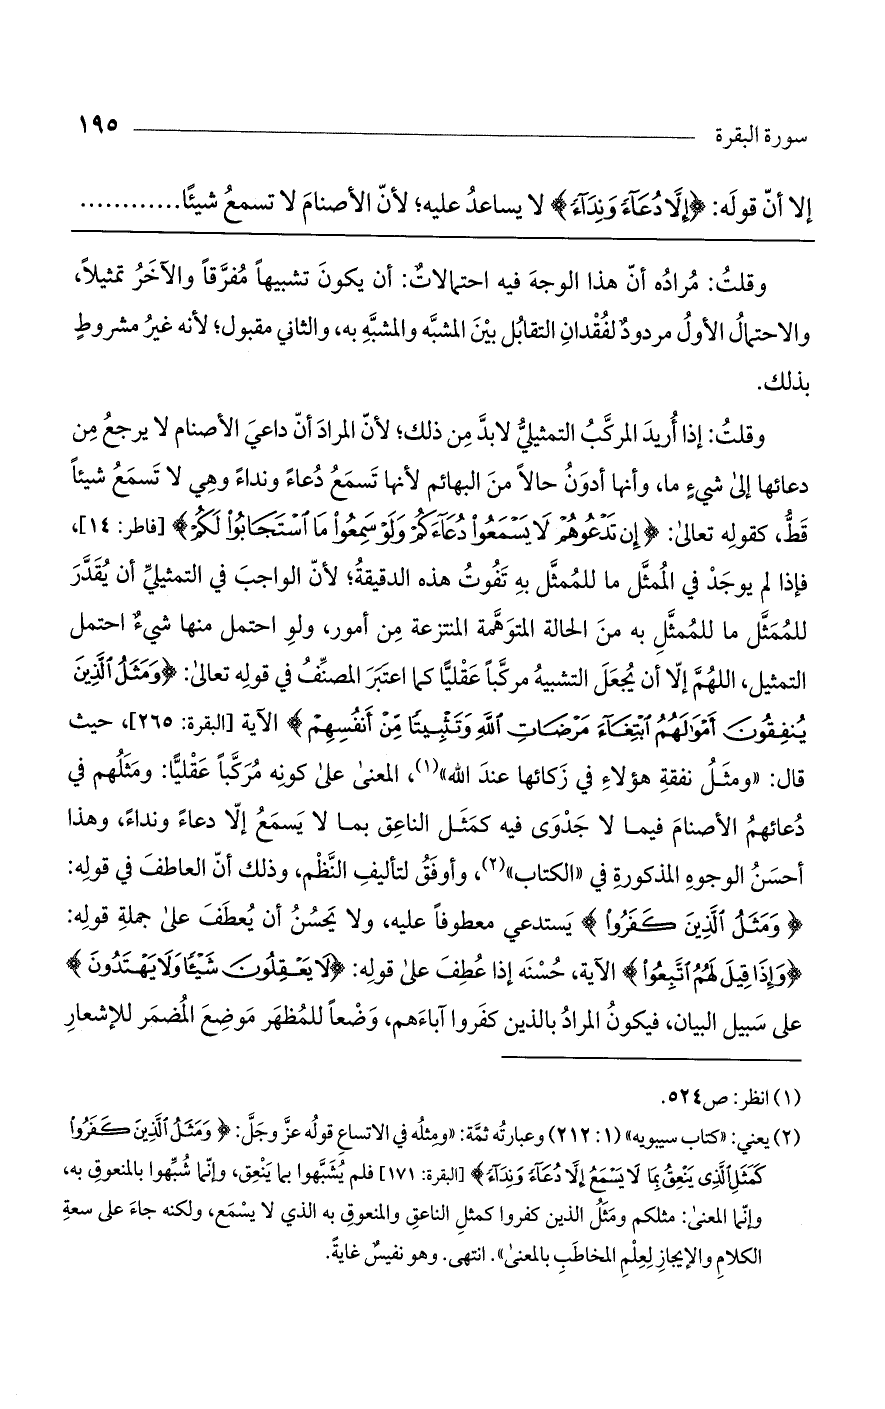 سورة البقرة ١٩٥
إلا أنّ قولَه: ﴿إِلَّا دُعَآءً وَنِدَآءً﴾ لا يساعدُ عليه؛ لأنّ الأصنامَ لا تسمعُ شيئًا............
وقلتُ: مُرادُه أنّ هذا الوجهَ فيه احتمالاتٌ: أن يكونَ تشبيهاً مُفرَّقاً والآخَرُ تمثيلاً،
والاحتمالُ الأولُ مردودٌ لفُقْدانِ التقابُل بيْنَ المشبَّه والمشبَّهِ به، والثاني مقبول؛ لأنه غيرُ مشروطٍ
بذلك.
وقلتُ: إذا أُريدَ المركَّبُ التمثيليُّ لابدَّ مِن ذلك؛ لأنّ المرادَ أنّ داعيَ الأصنام لا يرجعُ مِن
دعائها إلىٰ شيءٍ ما، وأنها أدوَنُ حالاً منَ البهائم لأنها تَسمَعُ دُعاءً ونداءً وهِي لا تَسمَعُ شيئاً
قَطُّ، كقولِه تعالىٰ: ﴿إِن تَدْعُوهُمْ لَا يَسْمَعُواْ دُعَآءَكُمْ وَلَوْ سَمِعُواْ مَا ٱسْتَجَابُواْ لَكُمْ﴾ [فاطر: ١٤]،
فإذا لم يوجَدْ في الُممثَّل ما للمُمثَّل بهِ تَفُوتُ هذه الدقيقةُ؛ لأنّ الواجبَ في التمثيليِّ أن يُقدَّرَ
للمُمَثَّل ما للمُمثَّلِ به منَ الحالة المتوَهَّمة المنتزعة مِن أمور، ولوِ احتمل منها شيءٌ احتمل
التمثيل، اللهُمَّ إلّا أن يُجعَلَ التشبيهُ مركَّباً عَقْليًّا كما اعتبَرَ المصنِّفُ في قولِه تعالىٰ: ﴿وَمَثَلُ ٱلَّذِينَ
يُنفِقُونَ أَمْوَٰلَهُمُ ٱبْتِغَآءَ مَرْضَاتِ ٱللَّهِ وَتَثْبِيتًا مِّنْ أَنفُسِهِمْ﴾ الآية [البقرة: ٢٦٥]، حيث
قال: «ومثَلُ نفقةِ هؤلاءِ في زَكائها عندَ الله»(١)، المعنىٰ علىٰ كونِه مُرَكَّباً عَقْليًّا: ومَثَلُهم في
دُعائهمُ الأصنامَ فيما لا جَدْوَى فيه كمَثَل الناعِق بما لا يَسمَعُ إلّا دعاءً ونداءً، وهذا
أحسَنُ الوجوهِ المذكورةِ في «الكتاب»(٢)، وأوفَقُ لتأليفِ النَّظْم، وذلك أنّ العاطفَ في قولِه:
﴿وَمَثَلُ ٱلَّذِينَ كَفَرُواْ﴾ يَستدعي معطوفاً عليه، ولا يَحسُنُ أن يُعطَفَ علىٰ جملةِ قولِه:
﴿وَإِذَا قِيلَ لَهُمُ ٱتَّبِعُواْ﴾ الآية، حُسْنَه إذا عُطِفَ علىٰ قولِه: ﴿لَا يَعْقِلُونَ شَيْئًا وَلَا يَهْتَدُونَ﴾
على سَبيل البيان، فيكونُ المرادُ بالذين كفَروا آباءَهم، وَضْعاً للمُظهَر مَوضِعَ الُمضمَر للإشعارِ
(١) انظر: ص٥٢٤.
(٢) يعني: «كتاب سيبويه» (١: ٢١٢) وعبارتُه ثمَّة: «ومِثلُه في الاتساعِ قولُه عزَّ وجلَّ: ﴿وَمَثَلُ ٱلَّذِينَ كَفَرُواْ
كَمَثَلِ ٱلَّذِى يَنْعِقُ بِمَا لَا يَسْمَعُ إِلَّا دُعَآءً وَنِدَآءً﴾ [البقرة: ١٧١] فلم يُشَبَّهوا بما يَنْعِق، وإنّما شُبِّهوا بالمنعوق به،
وإنّما المعنىٰ: مثلكم ومَثَلُ الذين كفروا كمثلِ الناعقِ والمنعوقِ به الذي لا يسْمَع، ولكنه جاءَ على سعةِ
الكلامِ والإيجازِ لِعِلْمِ المخاطَبِ بالمعنىٰ». انتهى. وهو نفيسٌ غايةً.